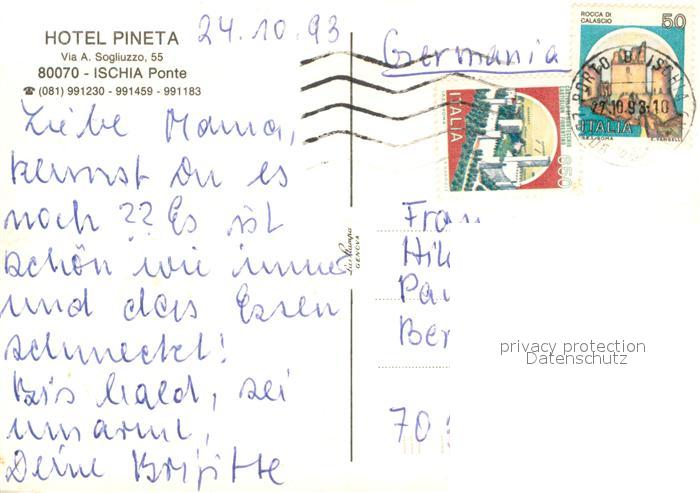 HOTEL PINETA
Via A. Sogliuzzo, 55
80070 - ISCHIA Ponte
☎ (081) 991230 - 991459 - 991183
24.10.93
Liebe Mama,
kennst Du es
noch ?? Es ist
schön wie immer
und das Essen
schmeckt!
Bis bald, sei
umarmt,
Deine Brigitte
GENOVA
Germania
ROCCA DI
CALASCIO
50
ITALIA
PORTO D'ISCHIA
27.10.93-10
ITALIA
650
Frau
Hil
Pau
Ber
70
privacy protection
Datenschutz